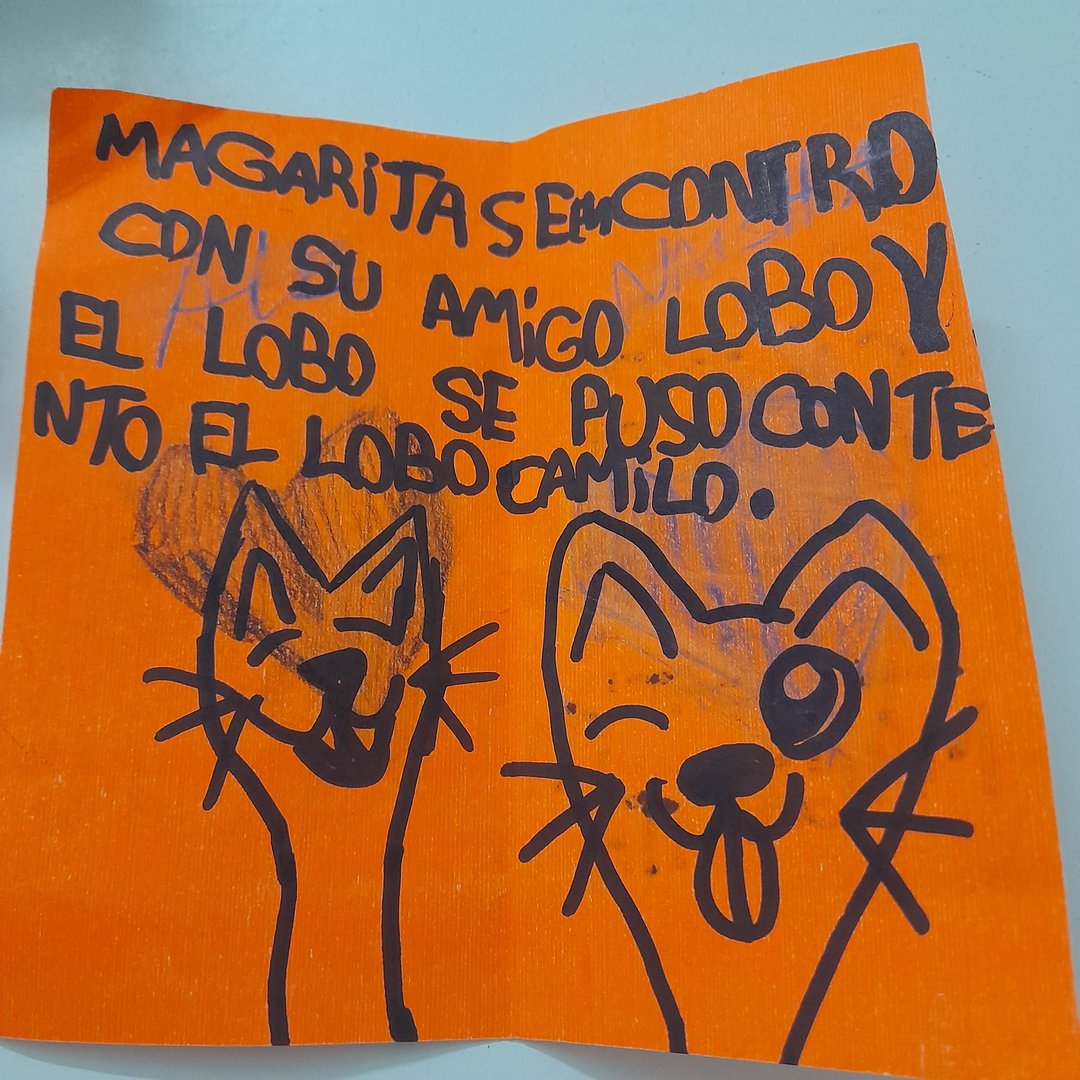 MAGARiTA SEMCONTRO
CON SU AMiGO LOBO Y
EL LOBO SE PUSO CONTE
NTO EL LOBO CAMiLO.